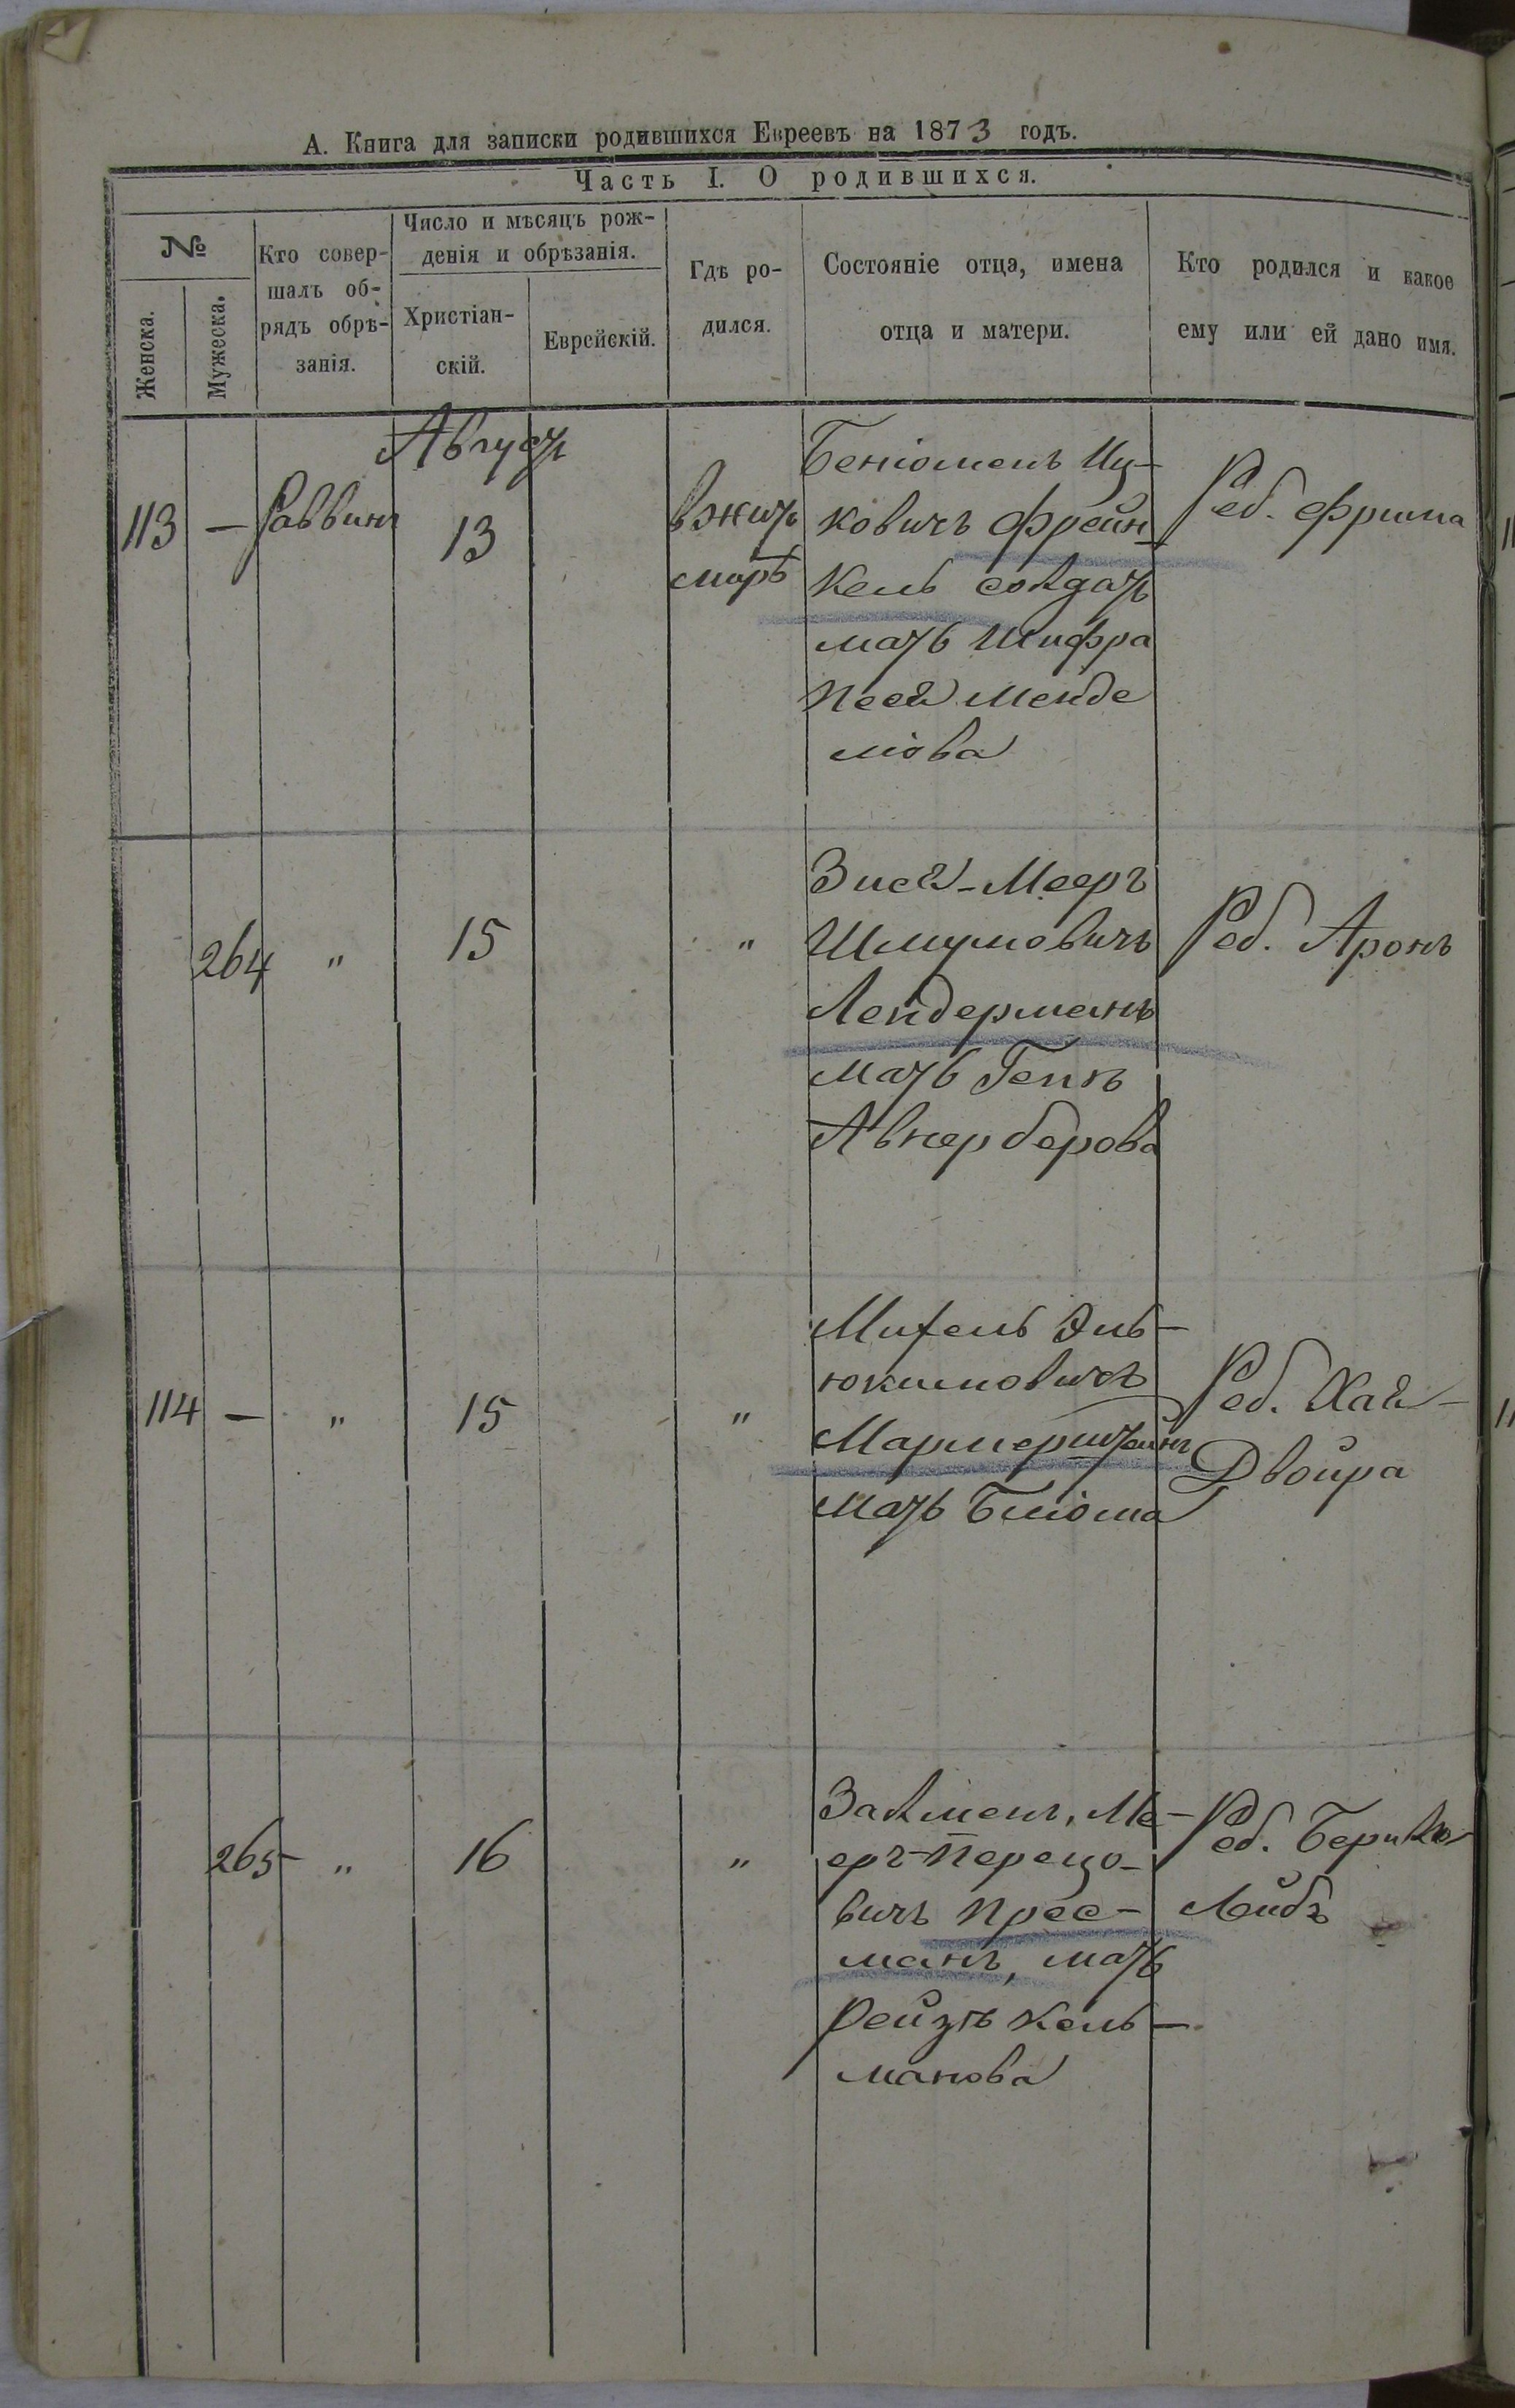 А. Книга для записки родившихся Евреевъ на 1873 годъ.
Часть I. О родившихся.
№
Женска.
Мужеска.
Кто совер-
шалъ об-
рядъ обрѣ-
занія.
Число и мѣсяцъ рож-
денія и обрѣзанія.
Христіан-
скій.
Еврейскій.
Гдѣ ро-
дился.
Состояніе отца, имена
отца и матери.
Кто родился и какое
ему или ей дано имя.
Августъ
113 — Раввинъ 13
в Жит
мирѣ
Беніоменъ Иц-
ковичъ Френ-
кель солдатъ
мать Шифра
Песя Менде
ліова
Реб. Фрима
264 " 15 "
Зися-Мееръ
Шмулiовичъ
Лендерманъ
мать Генъ
Авнерберова
Реб. Аронъ
114 — " 15 "
Михель Эль-
юкимовичъ
Мармерштейнъ
мать Бліома
Реб. Хая-
Двойра
265 " 16 "
Залменъ, Ме-
еръ-Перецо-
вичъ Прес-
манъ, мать
Рейзѣ Кель-
манова
Реб.
Лейбъ